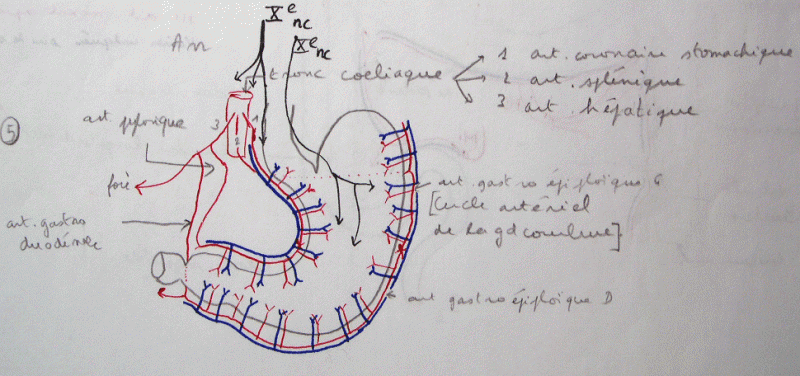 Xe nc
An
Xe nc
tronc coeliaque
1 art. coronaire stomachique
2 art. splénique
3 art. hépatique
5
art. pylorique
3
2
1
foie
art. gastro
duodénale
art. gastro épiploïque G
[cercle artériel
de la gd courbure]
art gastro épiploïque D